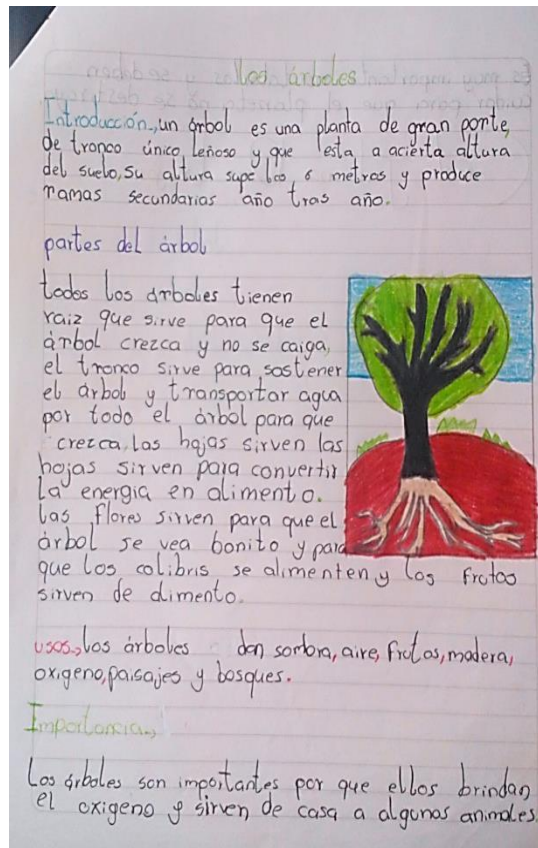 los árboles
Introducción, un árbol es una planta de gran porte,
de tronco único leñoso y que esta a acierta altura
del suelo, su altura supe los 6 metros y produce
ramas secundarias año tras año.
partes del árbol
todos los árboles tienen
raiz que sirve para que el
árbol crezca y no se caiga,
el tronco sirve para sostener
el árbol y transportar agua
por todo el árbol para que
crezca. las hojas sirven las
hojas sirven para convertir
la energia en alimento.
las flores sirven para que el
árbol se vea bonito y para
que los colibris se alimenten y los frutos
sirven de alimento.
usos, los árboles dan sombra, aire, frutas, madera,
oxigeno, paisajes y bosques.
Importancia,
Los árboles son importantes por que ellos brindan
el oxigeno y sirven de casa a algunos animales.